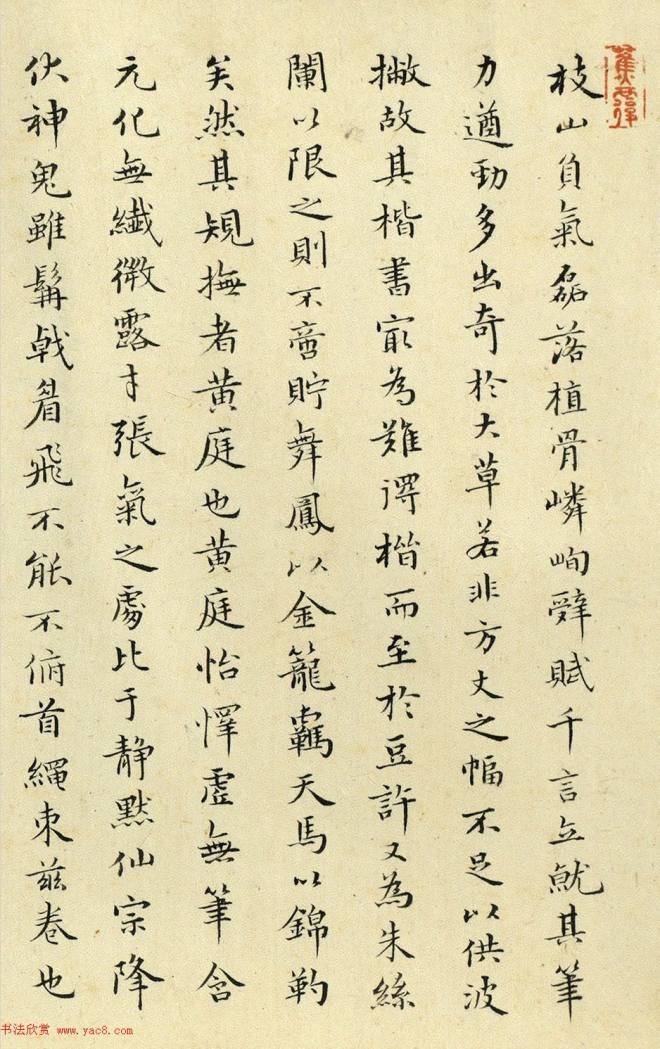 枝山負氣磊落植骨嶙峋辭賦千言立就其筆
力遒勁多出奇於大草若非方丈之幅不足以供波
撇故其楷書寂為難得楷而至於豆許又為朱絲
闌以限之則不啻貯舞鳳以金籠羈天馬以錦靮
矣然其規撫者黃庭也黃庭怡懌虛無筆含
元化無纖微露才張氣之處比于靜默仙宗降
伏神鬼雖髯戟眉飛不能不俯首繩束茲卷也
书法欣赏 www.yac8.com